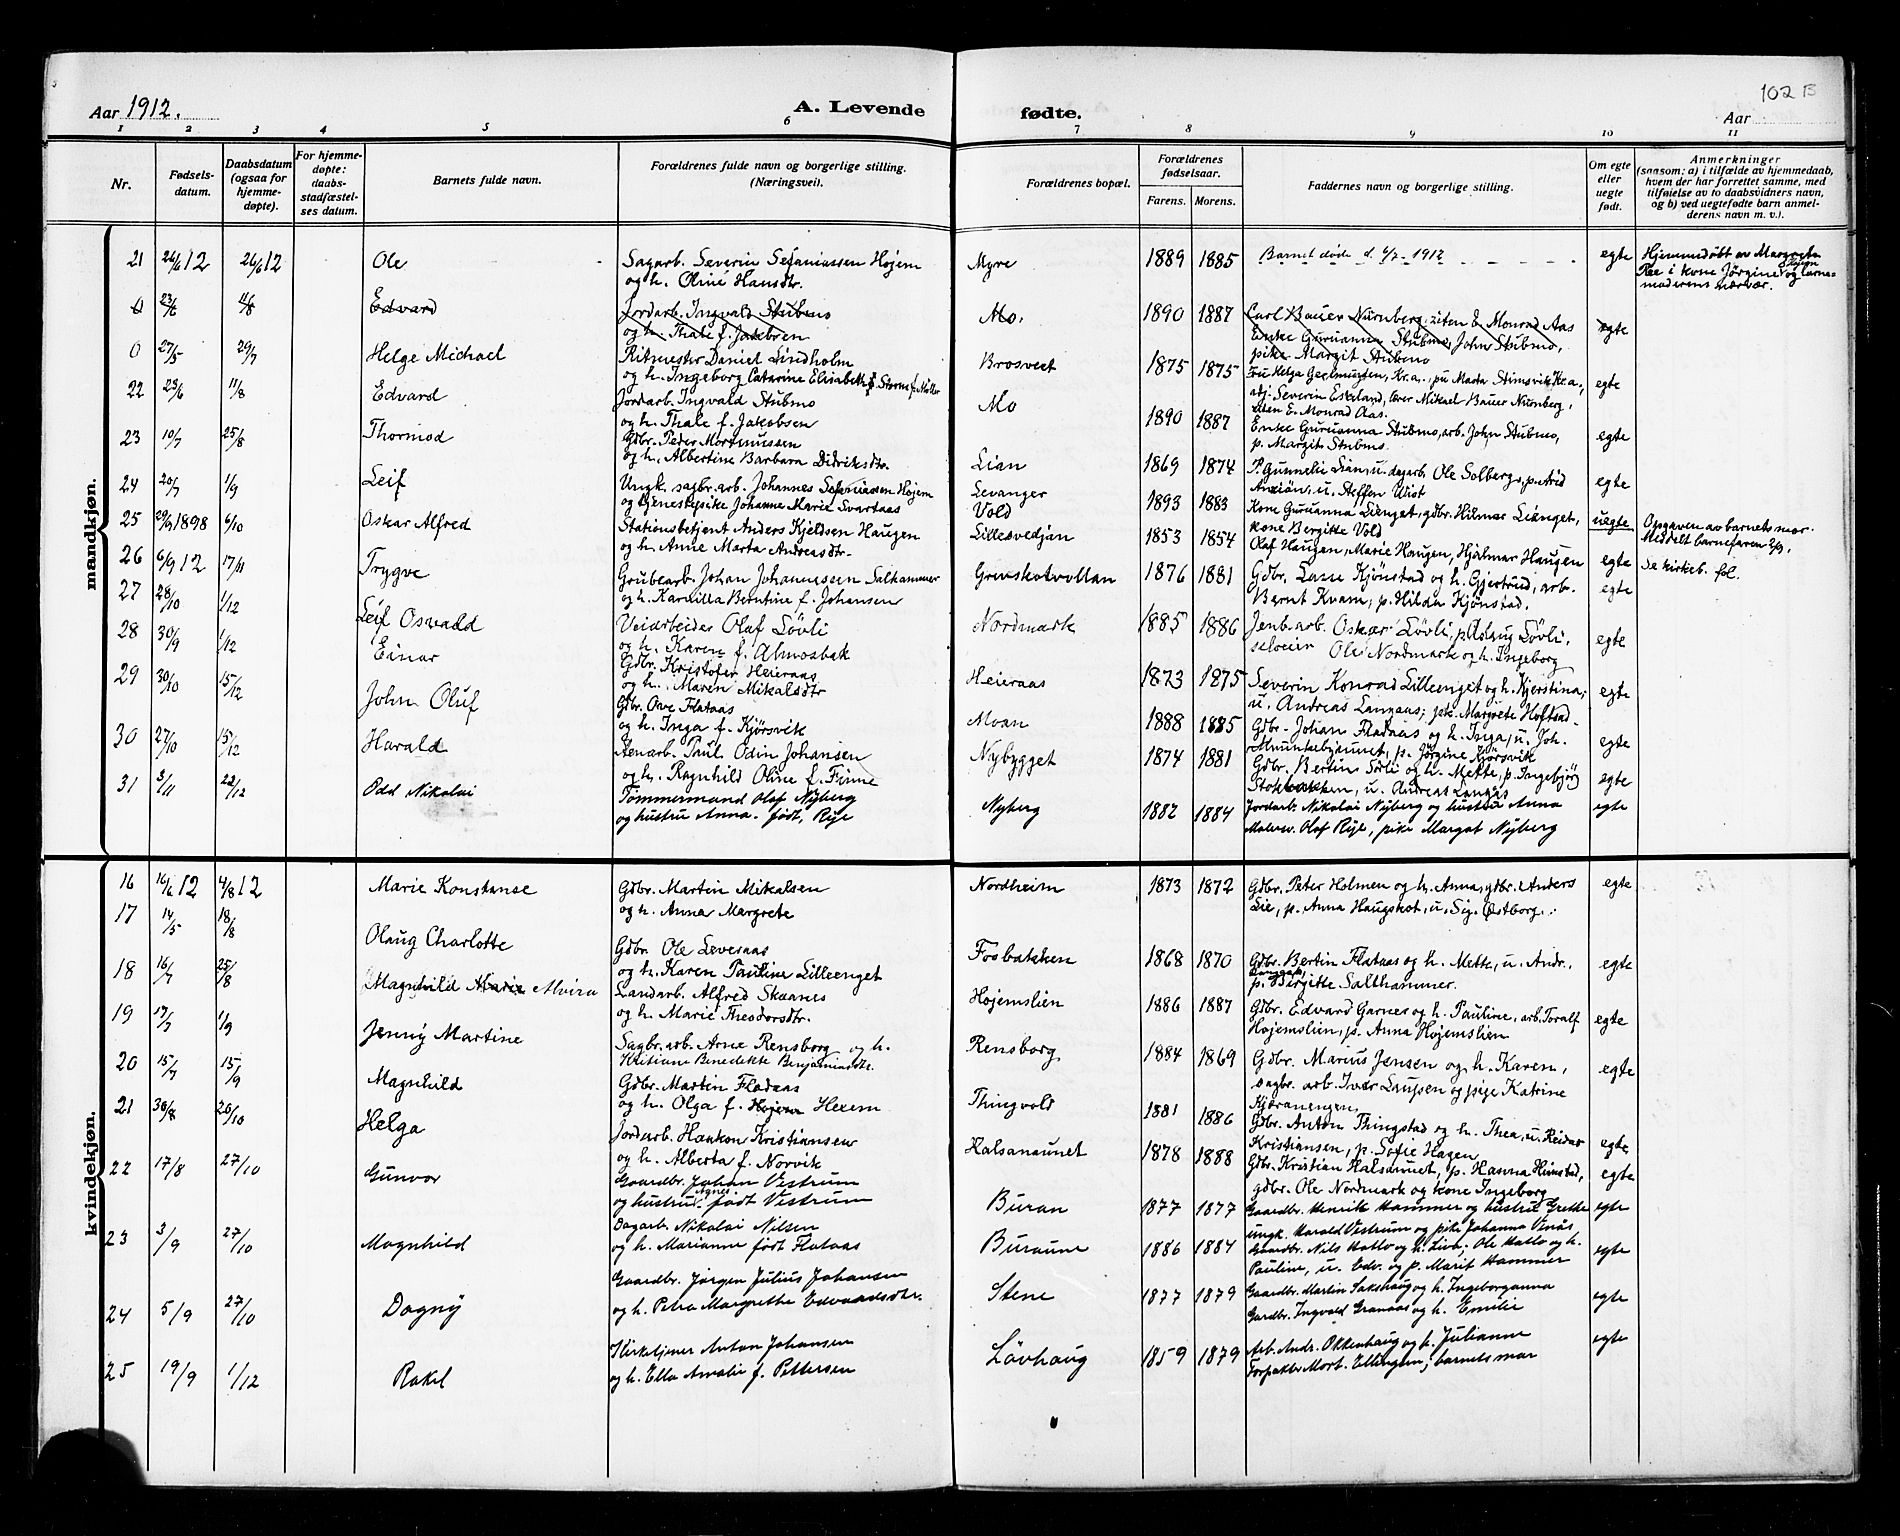 102 B
Aar 1912.
A. Levende fødte.
Aar
1 2 3 4 5 6 7 8 9 10 11
Nr.
Fødsels-
datum.
Daabsdatum
(ogsaa for
hjemme-
døpte).
For hjemme-
døpte:
daabs-
stadfæstel-
ses datum.
Barnets fulde navn.
Forældrenes fulde navn og borgerlige stilling.
(Næringsvei).
Forældrenes bopæl.
Forældrenes
fødselsaar.
Farens. Morens.
Faddernes navn og borgerlige stilling.
Om egte
eller
uegte
født.
Anmerkninger
(saasom: a) i tilfælde av hjemmedaab,
hvem der har forrettet samme, med
tilføielse av to daabsvidners navn,
og b) ved uegtefødte barn anmel-
derens navn m. v.).
mandkjøn.
21 26/6 12 26/6 12 Ole Sagarb. Severin Sefaniassen Højem Myre 1889 1885 Barnet døde d. 4/7 1912 egte Hjemmedøbt av Margrete
og h. Oline Hansdtr. Ree i kone Jørgine Højem og barne-
moderens nærvær.
0 23/6 11/8 Edvard Jordarb. Ingvald Stubmo Mo. 1890 1887 Carl Bauer Nürnberg, liten E. Monrad Aas egte
og h. Thale f. Jakobsen Enke Guruanna Stubmo, John Stubmo,
pike Margit Stubmo
0 27/5 29/7 Helge Michael Ritmester Daniel Lindholm Brosveet 1875 1875 Fru Helga Geelmuyden, Kr.a., pu Marta Stimsvik Kr.a., egte
og h. Ingeborg Catarine Elisabeth f. Storm f. Møller adj. Severin Eskeland, lærer Mikael Bauer Nurnberg,
22 23/6 11/8 Edvard Jordarb. Ingvald Stubmo Mo 1890 1887 liten E. Monrad Aas.
og h. Thale f. Jakobsen Enke Guruanna Stubmo, arb. John Stubmo, egte
p. Margit Stubmo.
23 10/7 25/8 Thormod Gdbr. Peder Mortinussen Lian 1869 1874 P. Gunnelie Lian, u. dagarb. Ole Solberg, p. egte
og h. Albertine Barbara Didriksdtr. u. Steffen Wist
24 20/7 1/9 Leif Ungk. sagbr. arb. Johannes Sefaniassen Højem Levanger 1893 1883 Kone Guruanna Lienget, gdbr. Hilmar Lienget, uegte Opgaven av barnets mor.
og tjenestepike Johanna Marie Svartaas Vold kone Bergitte Vold Meddelt barnefaren
25 29/9 1898 6/10 Oskar Alfred Stationsbetjent Anders Kjeldsen Haugen Lillesvedjan 1853 1854 Olaf Haugen, Marie Haugen, Hjalmar Haugen egte Se kirkeb. fol.
og h. Anne Marta Andreasdtr.
26 6/9 12 17/11 Trygve Grubearb. Johan Johannessen Salthammer Grinskotvollan 1876 1881 Gdbr. Lasse Kjønstad og h. Gjertrud, arb. egte
og h. Karnilla Berntine f. Johansen Bernt Kvam, p. Hilda Kjønstad.
27 28/10 1/12 Leif Osvald Veiarbeider Olaf Løvli Nordmark 1885 1886 Jenb. arb. Oskar Løvli, p. Aslaug Løvli, egte
og h. Karen f. Almosbak selveier Ole Nordmark og h. Ingeborg
28 30/9 1/12 Einar Gdbr. Kristofer Heieraas Heieraas 1873 1875 Severin Konrad Lilleenget og h. Kjerstina, egte
og h. Maren Mikalsdtr u. Andreas Langaas, pk. Margrete Hoftad
29 30/10 15/12 John Oluf Gdbr. Ove Flataas Moan 1888 1885 Gdbr. Johan Fladaas og h. Inga, u. Joh. egte
og h. Inga f. Kjørsvik p. Jørgine Kjørsvik
30 27/10 15/12 Harald Stenarb. Paul Odin Johansen Nybygget 1874 1881 Gdbr. Bertin Sørli og h. Mette, p. Ingebjørg egte
og h. Ragnhild Oline f. Finne Stokbakken, u. Andreas Langås
31 3/11 22/12 Odd Nikolai Tømmermand Olaf Nyberg Nyberg 1882 1884 Jordarb. Nikolai Nyberg og hustru Anna egte
og hustru Anna. født, Rye Malersv. Olaf Rye, pike Margot Nyberg
kvindekjøn.
16 16/6 12 4/8 12 Marie Konstanse Gdbr. Martin Mikalsen Nordheim 1873 1872 Gdbr. Peter Holmen og h. Anna, gdbr. Anders egte
og h. Anna Margrete Lie, p. Anna Haugskot, u. Sig. Østborg.
17 14/5 18/8 Olaug Charlotte Gdbr. Ole Leveraas Fosbakken 1868 1870 Gdbr. Bertin Flataas og h. Mette, u. Andr. egte
og h. Karen Pauline Lilleenget Langaas, p. Birgitte Salthammer.
18 16/7 25/8 Magnhild Marie Alvira Landarb. Alfred Skaanes Højemslien 1886 1887 Gdbr. Edvard Garnes og h. Pauline, arb. Toralf egte
og h. Marie Theodorsdtr. Højemslien, p. Anna Højemslien
19 17/7 1/9 Jenny Martine Sagbr. arb. Arne Rensborg og h. Rensborg 1884 1869 Gdbr. Marius Jensen og h. Karen, egte
Kristiane Benedikte Benjaminsdtr. sagbr. arb. Iver Laupsen og pige Katrine
20 15/7 15/9 Magnhild Gdbr. Martin Fladaas Thingvold 1881 1886 Kjæranengen
og h. Olga f. Hojem Hexem Gdbr. Anton Thingstad og h. Thea, u. Reidar egte
21 30/8 20/10 Helga Jordarb. Haakon Kristiansen Halsanaunet 1878 1888 Kristiansen, p. Sofie Hagen
og h. Alberta f. Norvik Gdbr. Kristian Halsaunet, p. Hanna Himstad, egte
gdbr. Ole Nordmark og kone Ingeborg
22 17/8 27/10 Gunvor Gaardbr. Johan Vestrum Buran 1877 1877 Gaardbr. Henrik Hammer og hustru Grethe egte
og hustru Agnes født Vestrum ungk. Harald Vestrum og pike Johanna Venås
23 3/9 27/10 Magnhild Dagarb. Nikolai Nilsen Buraune 1886 1884 Gaardbr. Nils Hallo og h. Liva; Ole Hallo og h. egte
og h. Marianne født Flataas Pauline, u. Edv. og p. Marit Hammer
24 5/9 27/10 Dagny Gaardbr. Jørgen Julius Johansen Stene 1877 1879 Gaardbr. Martin Sakshaug og h. Ingeborganna egte
og h. Petra Margrethe Edvardsdtr. Gardbr. Ingvald Granaas og h. Emilie
25 19/9 1/12 Rakel Kirketjener Anton Johansen Løvhaug 1859 1879 Arb. Andr. Okkenhaug og h. Julianne egte
og h. Ella Amalie f. Pettersen Forpakter Mort. Ellingsen; barnets mor